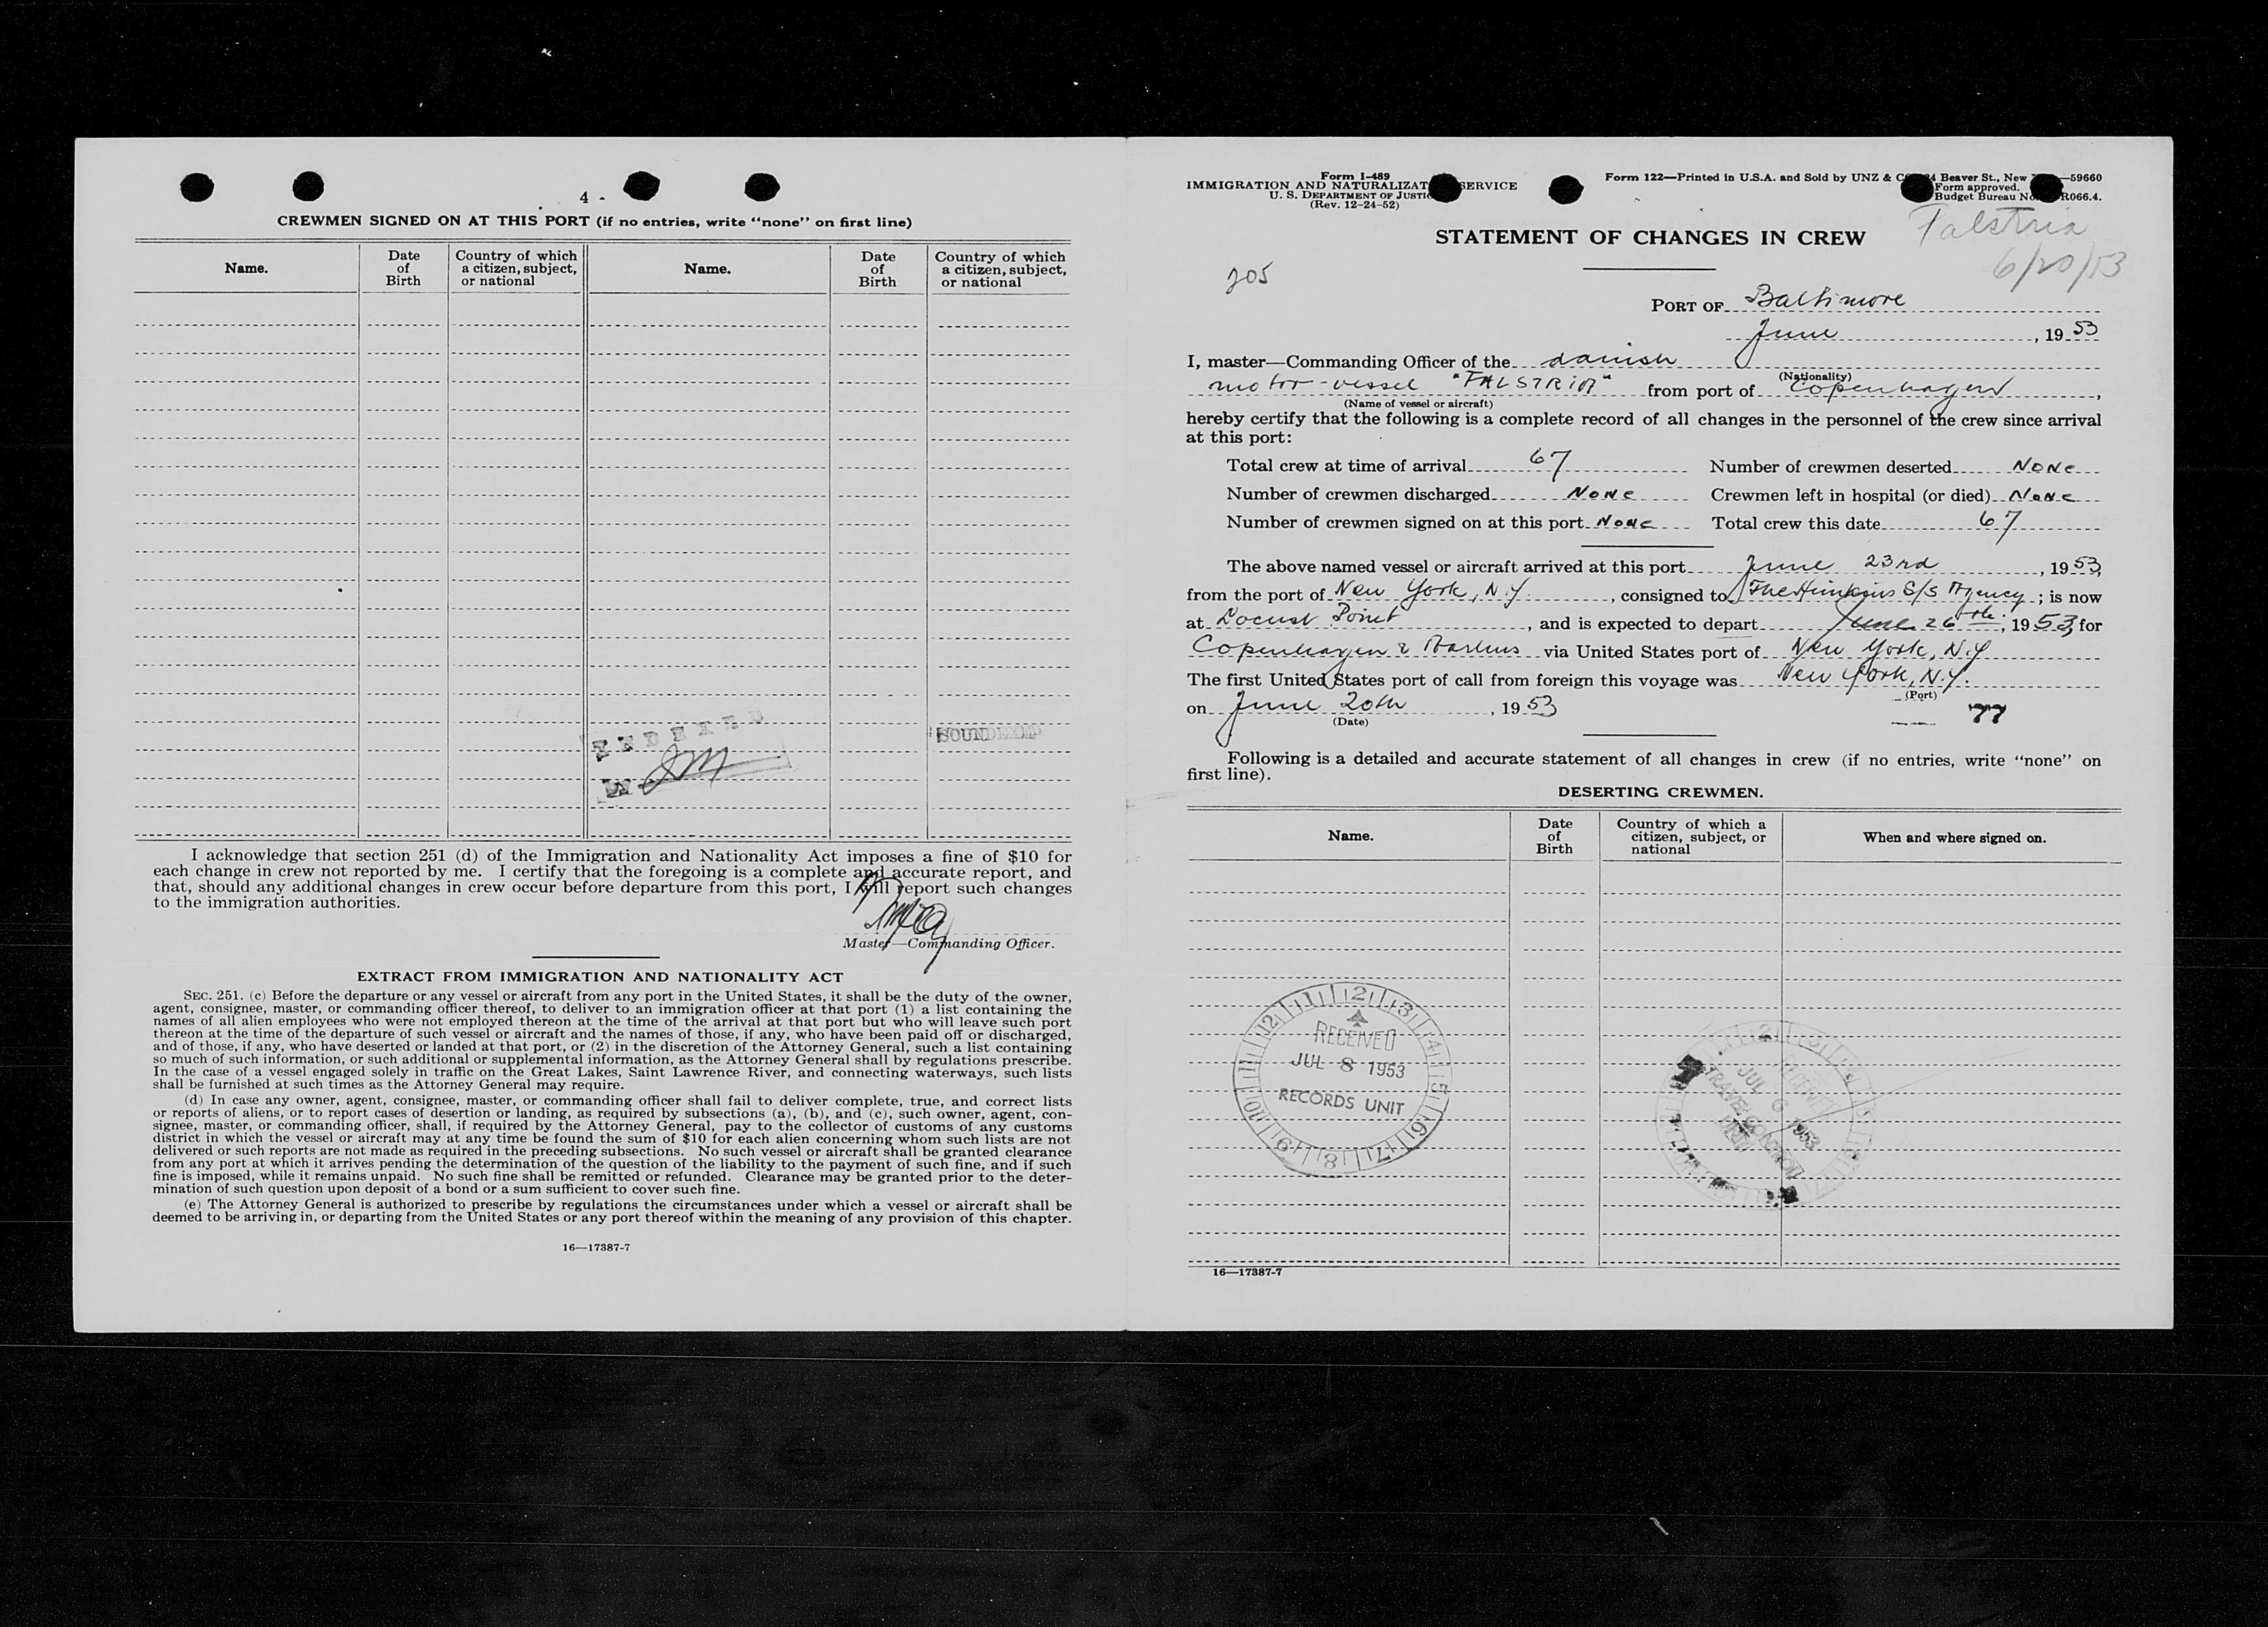 4 -
CREWMEN SIGNED ON AT THIS PORT (if no entries, write “none” on first line)
Name. Date of Birth Country of which a citizen, subject, or national Name. Date of Birth Country of which a citizen, subject, or national
INDEXED
SOUNDEXED
I acknowledge that section 251 (d) of the Immigration and Nationality Act imposes a fine of $10 for
each change in crew not reported by me. I certify that the foregoing is a complete and accurate report, and
that, should any additional changes in crew occur before departure from this port, I will report such changes
to the immigration authorities.
Master—Commanding Officer.
EXTRACT FROM IMMIGRATION AND NATIONALITY ACT
SEC. 251. (c) Before the departure or any vessel or aircraft from any port in the United States, it shall be the duty of the owner,
agent, consignee, master, or commanding officer thereof, to deliver to an immigration officer at that port (1) a list containing the
names of all alien employees who were not employed thereon at the time of the arrival at that port but who will leave such port
thereon at the time of the departure of such vessel or aircraft and the names of those, if any, who have been paid off or discharged,
and of those, if any, who have deserted or landed at that port, or (2) in the discretion of the Attorney General, such a list containing
so much of such information, or such additional or supplemental information, as the Attorney General shall by regulations prescribe.
In the case of a vessel engaged solely in traffic on the Great Lakes, Saint Lawrence River, and connecting waterways, such lists
shall be furnished at such times as the Attorney General may require.
(d) In case any owner, agent, consignee, master, or commanding officer shall fail to deliver complete, true, and correct lists
or reports of aliens, or to report cases of desertion or landing, as required by subsections (a), (b), and (c), such owner, agent, con-
signee, master, or commanding officer, shall, if required by the Attorney General, pay to the collector of customs of any customs
district in which the vessel or aircraft may at any time be found the sum of $10 for each alien concerning whom such lists are not
delivered or such reports are not made as required in the preceding subsections. No such vessel or aircraft shall be granted clearance
from any port at which it arrives pending the determination of the question of the liability to the payment of such fine, and if such
fine is imposed, while it remains unpaid. No such fine shall be remitted or refunded. Clearance may be granted prior to the deter-
mination of such question upon deposit of a bond or a sum sufficient to cover such fine.
(e) The Attorney General is authorized to prescribe by regulations the circumstances under which a vessel or aircraft shall be
deemed to be arriving in, or departing from the United States or any port thereof within the meaning of any provision of this chapter.
16—17387-7
Form I-489
IMMIGRATION AND NATURALIZAT SERVICE
U. S. DEPARTMENT OF JUSTIC
(Rev. 12-24-52)
Form 122—Printed in U.S.A. and Sold by UNZ & C 4 Beaver St., New —59660
Form approved.
Budget Bureau No. R066.4.
Falstria
6/20/53
STATEMENT OF CHANGES IN CREW
205
PORT OF Baltimore
June, 1953
I, master—Commanding Officer of the danish
(Nationality)
motor-vessel "FALSTRIA" from port of Copenhagen,
(Name of vessel or aircraft)
hereby certify that the following is a complete record of all changes in the personnel of the crew since arrival
at this port:
Total crew at time of arrival 67 Number of crewmen deserted NONE
Number of crewmen discharged NONE Crewmen left in hospital (or died) NONE
Number of crewmen signed on at this port NONE Total crew this date 67
The above named vessel or aircraft arrived at this port June 23rd, 1953,
from the port of New York, N.Y., consigned to The Hinkins S/S Agency; is now
at Locust Point, and is expected to depart June 26th, 1953, for
Copenhagen & Aarhus via United States port of New York, N.Y
The first United States port of call from foreign this voyage was New York, N.Y.
(Port)
on June 20th, 1953
(Date)
77
Following is a detailed and accurate statement of all changes in crew (if no entries, write “none” on
first line).
DESERTING CREWMEN.
Name. Date of Birth Country of which a citizen, subject, or national When and where signed on.
RECEIVED
JUL 8 1953
RECORDS UNIT
12 1 2 3 4 5 6 7 8 9 10 11
JUL 6 1953
TRAVEL CONTROL
16—17387-7